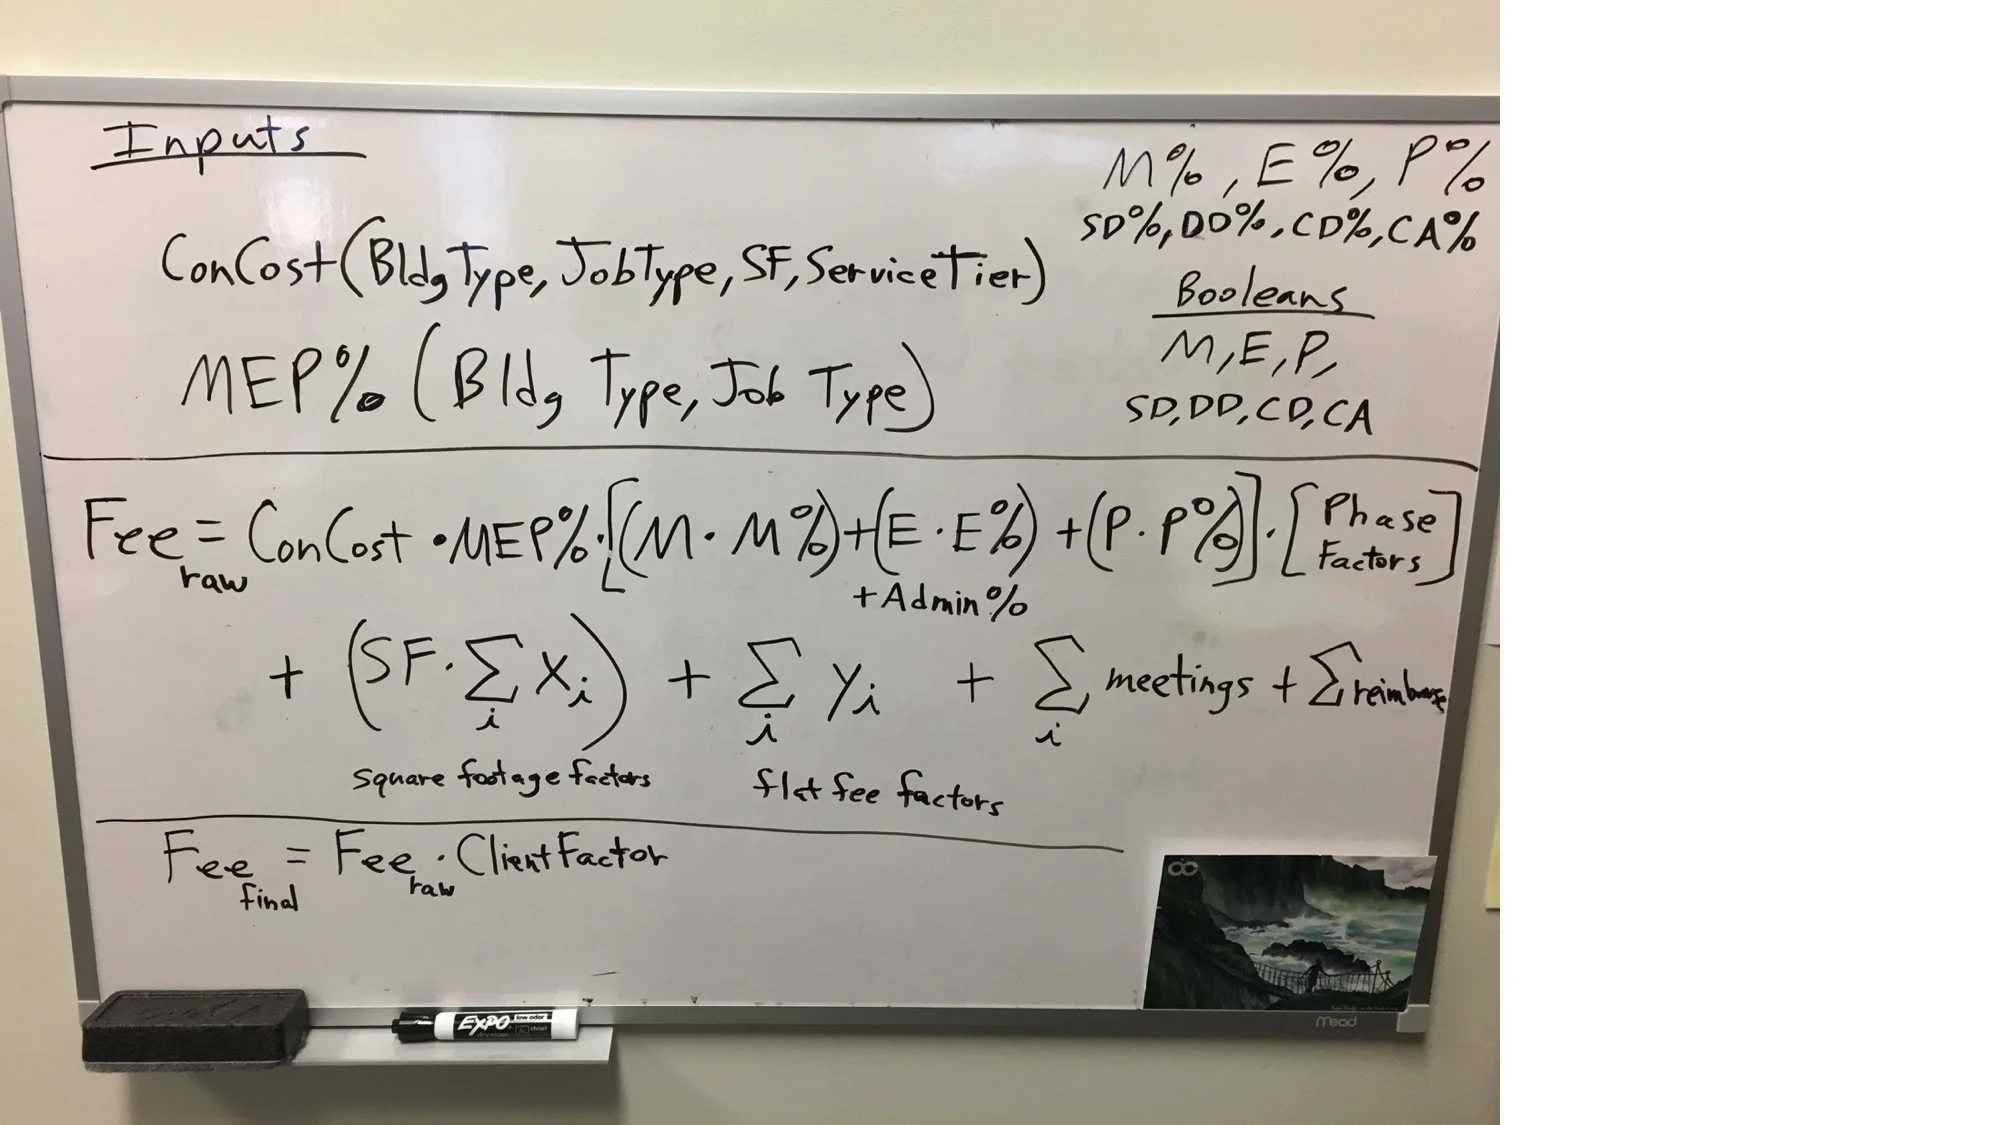 Inputs
M%, E%, P%
SD%, DD%, CD%, CA%
ConCost(BldgType, JobType, SF, ServiceTier)
Booleans
M, E, P,
SD, DD, CD, CA
MEP% (Bldg Type, Job Type)
Fee raw = ConCost · MEP% · [(M · M%) + (E · E%) + (P · P%)] · [Phase Factors]
+ Admin%
+ (SF · Σ i Xi) + Σ i yi + Σ i meetings + Σ reimburse
square footage factors
flat fee factors
Fee final = Fee raw · ClientFactor
EXPO low odor
chisel
Mead